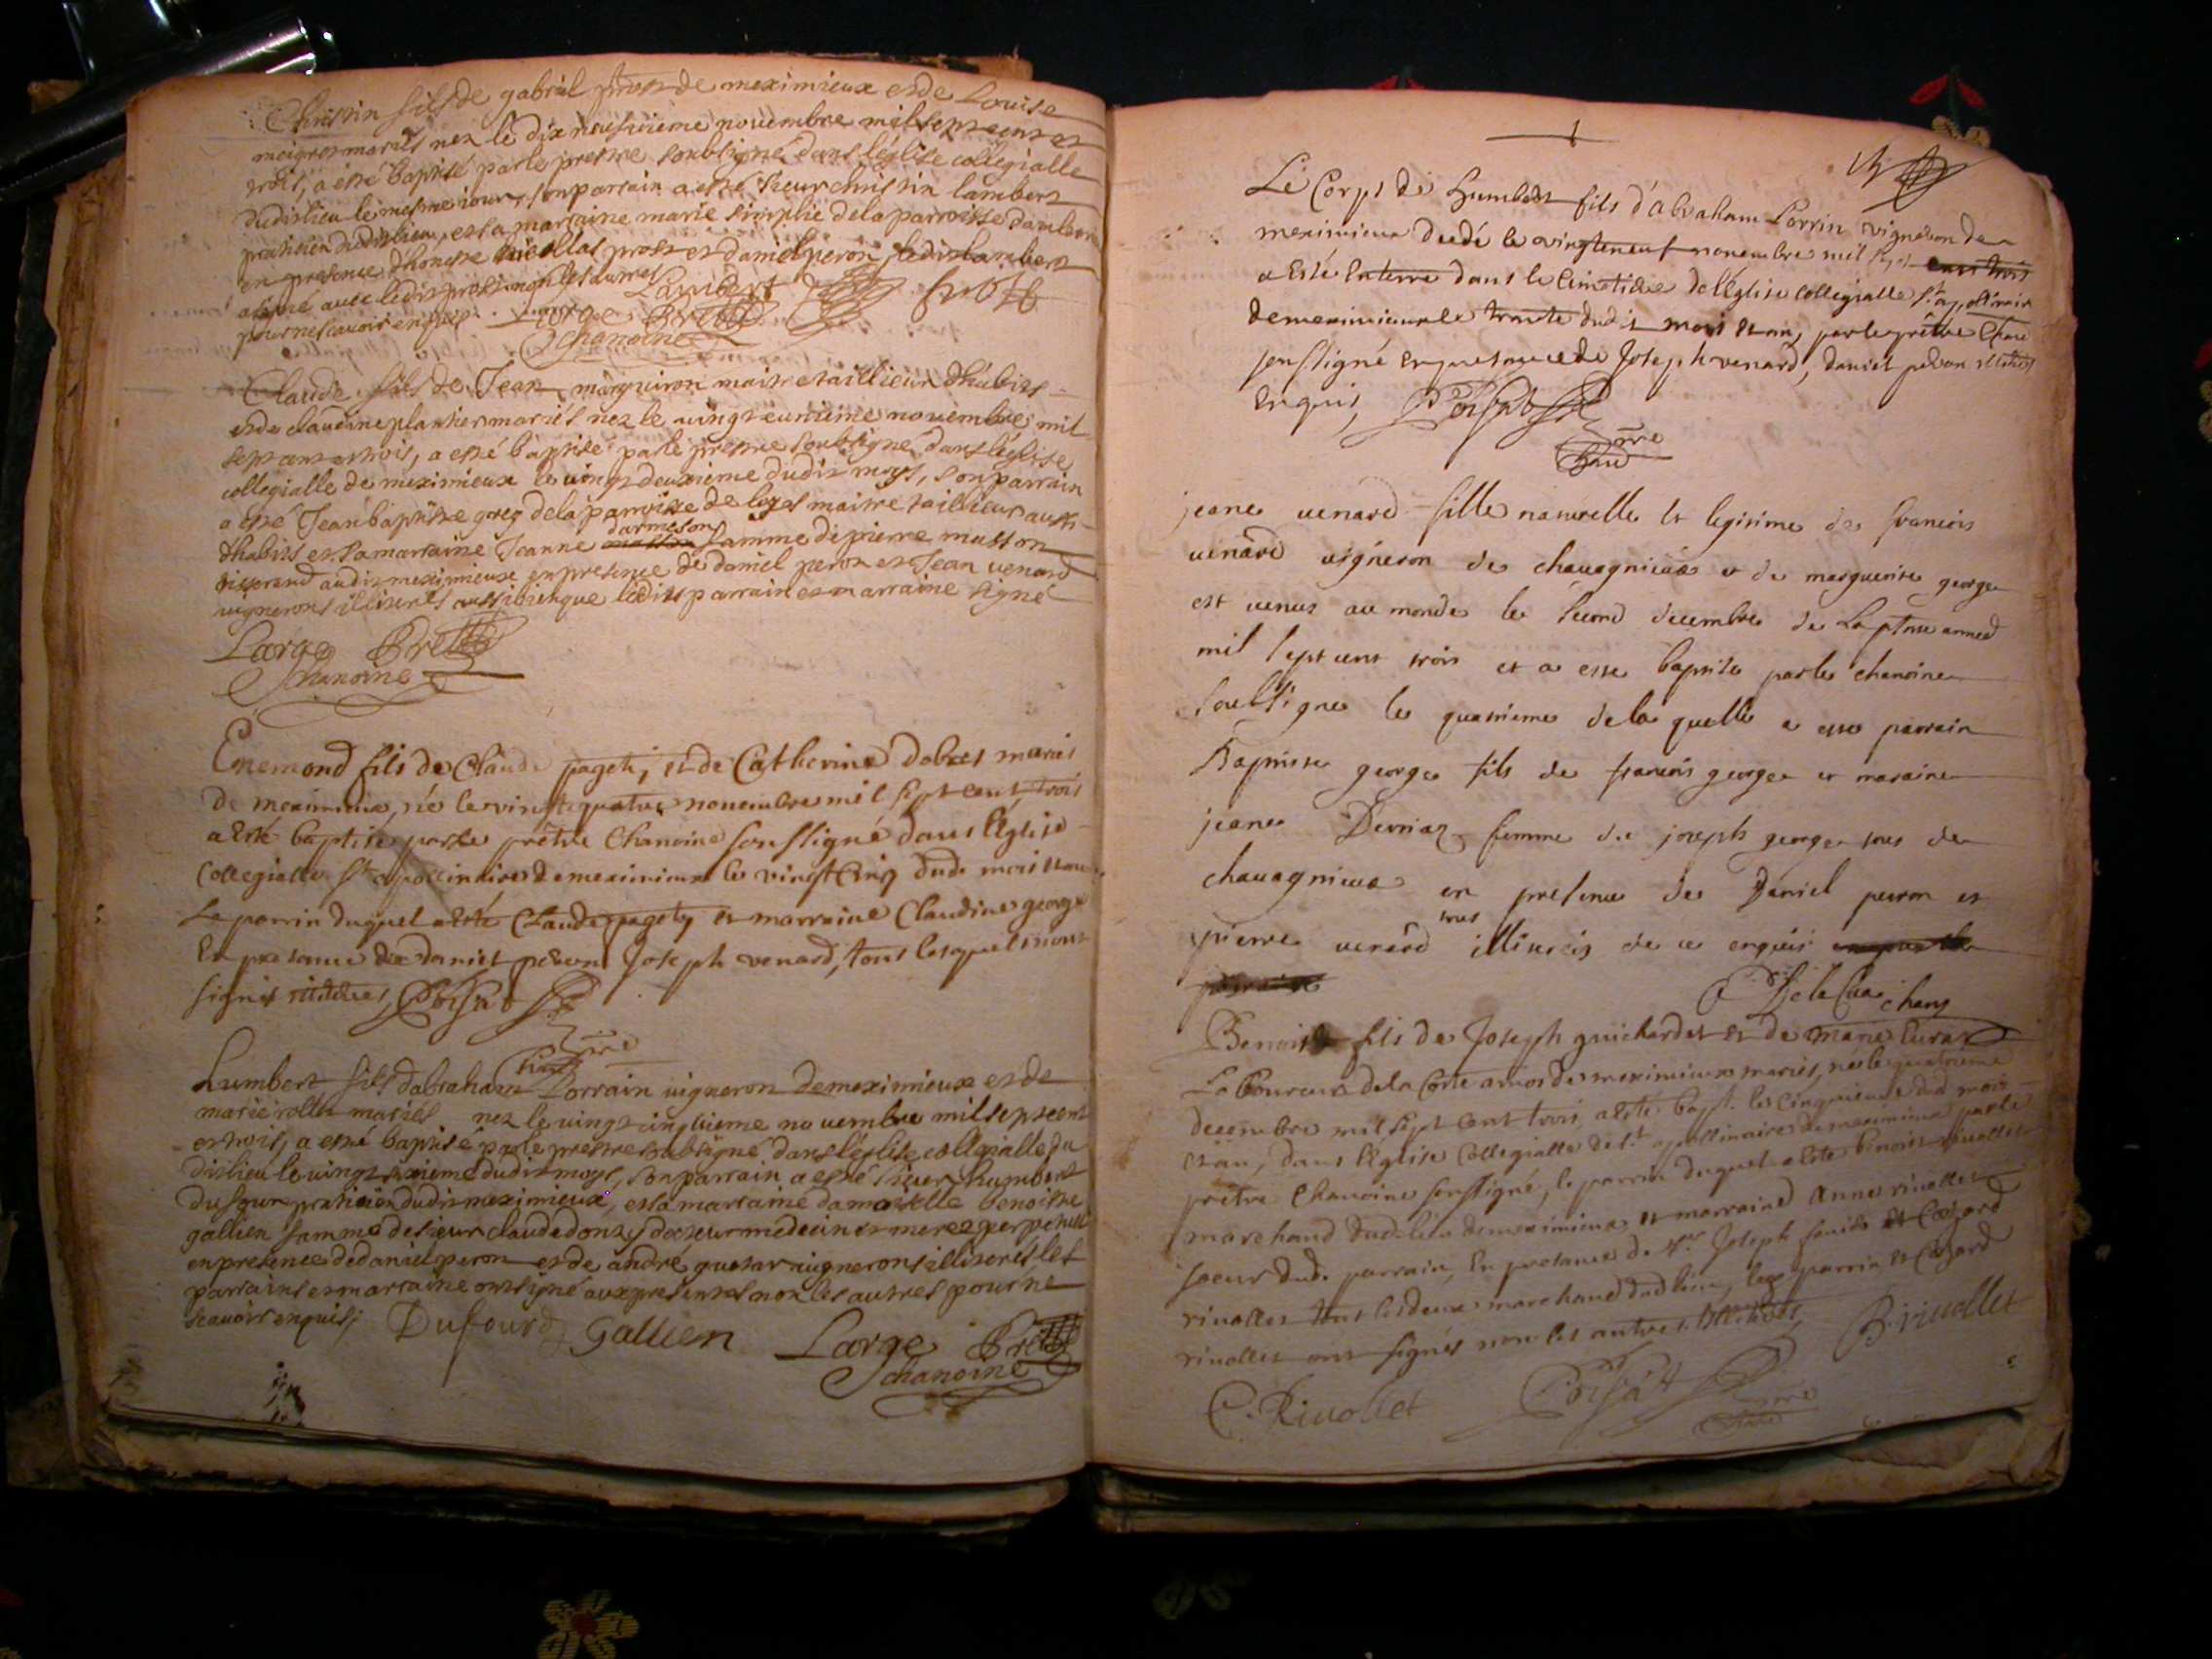 Christin fils de gabriel prost de meximieux et de Louise
meigret mariés nez le dix neufvieme novembre mil sept cent et
trois, a esté baptisé par le prestre soubsigné dans léglise collegialle
dudit lieu le mesme jour, son parrain a esté sieur christin lambert
praticien dudit lieu, et sa marraine marie simplie de la parroisse
en presence d'honeste nicollas prost et daniel peron, ledit lambert
a signé avec ledit prost non les autres
pour ne scavoir enquis. Lambert Prost
Large Prestre
chanoine
Claude fils de Jean marquiron maitre taillieur d'habits
et de claudine plantier mariés nez le vingt e unieme novembre mil
sept cent et trois, a esté baptisé par le prestre soubsigné dans léglise
collegialle de meximieux le vingt deuxieme dudit moys, son parrain
a esté Jean baptiste greg de la parroisse de loyes maitre taillieur aussi
d'habits et sa marraine Jeanne darmeson famme de pierre musson
tisserand audit meximieux en presence de daniel peron et Jean venard
vignerons illiterés aussi bien que ledits parrain et marraine signé
Large Prestre
chanoine
Enemond fils de Claude pagety, et de Catherine dobret mariés
de meximieux, né le vingt quatre novembre mil sept cent trois
a esté baptisé par le prêtre Chanoine soussigné dans l'église
Collegialle St apollinaire de meximieux le vingt Cinq dud. mois
Le parrin duquel a esté Claude pagety et marraine Claudine george
En presance de daniel peron Joseph venard, tous lesquels n'ont
signés illiterés, Poisat
Humbert fils d'abraham Lorrain vigneron de meximieux et de
marie rollet mariés nez le vingt cinquieme novembre mil sept cent
et trois, a esté baptisé par le prestre subsigné dans léglise collegialle du
dit lieu le vingt sixieme dudit moys, son parrain a esté sieur humbert
Dufour praticien dudit meximieux, et sa marraine damoiselle benoiste
gallien famme de sieur claude donzy docteur medecin
en presence de daniel peron et de andré guttar vignerons illiterés les
parrains et marraine ont signé aux presentes non les autres pour ne
scavoir enquis; Dufour Gallien Large Prestre
chanoine
1
Le Corps de Humbert fils d'abraham Lorrin vigneron de
meximieux decédé le vingt neuf novembre mil sept cent trois
a Esté Enterré dans le Cimetiere de l'église collegialle St apollinair
de meximieux le trente dudit mois et an, par le prêtre Chane
soussigné En presance de Joseph venard, daniel peron illiterés
Enquis, Poisat
jeane venard fille naturelle et legitime de francois
venard vigneron de chavagnieux et de marguerite george
est venus au monde le second decembre de La ptnte anneé
mil sept cent trois et a esté baptisée par le chanoine
soubsigne le quatrieme de la quelle a esté parrain
Baptiste george fils de francois george et maraine
jeane Devriaz femme de joseph george tous de
chavagnieux en presence de Daniel peron et
pierre venard tous illiterés de ce enquis
De la Cua chang
Benoist fils de Joseph guichardet et de marie Curas
Laboureur de la Coste arnos de meximieux mariés, né le quatrieme
decembre mil sept cent trois, a esté bapt. le cinquieme dud mois
et an, dans l'église Collegialle de St apollinaire de meximieux par le
prêtre Chanoine soussigné, le parrin duquel a este benoist rivollet
marchand dud. lieu de meximieux et marraine anne rivollet
soeur dud. parrain, En presance de Joseph et Cesard
rivollet tous les deux marchand dud lieu, les parrin et Cesard
rivollet ont signés non les autres
C. Rivollet Poisat B. rivollet